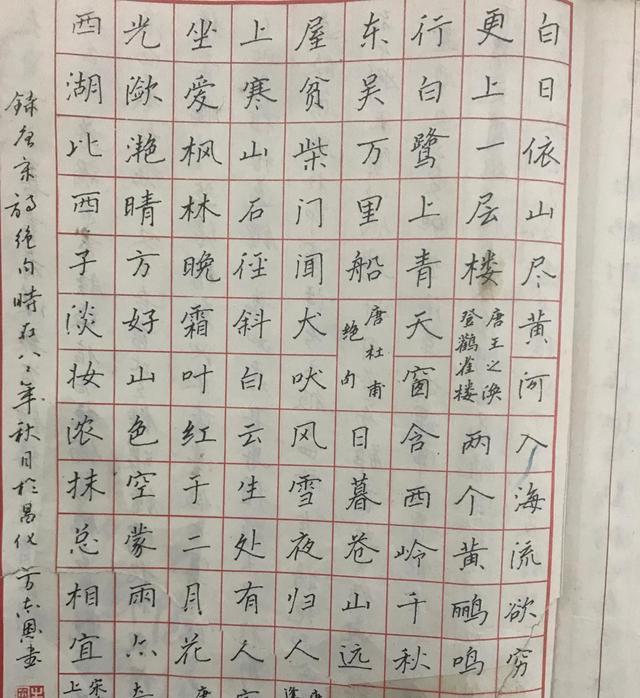 白日依山尽黄河入海流欲穷
更上一层楼
唐王之涣
登鹳雀楼
两个黄鹂鸣
行白鹭上青天窗含西岭千秋
东吴万里船
唐杜甫
绝句
日暮苍山远
屋贫柴门闻犬吠风雪夜归人
上寒山石径斜白云生处有人
坐爱枫林晚霜叶红于二月花
唐
光潋滟晴方好山色空蒙雨亦
西湖比西子淡妆浓抹总相宜
宋
上
唐宋绝句時在八二年秋月於昌化